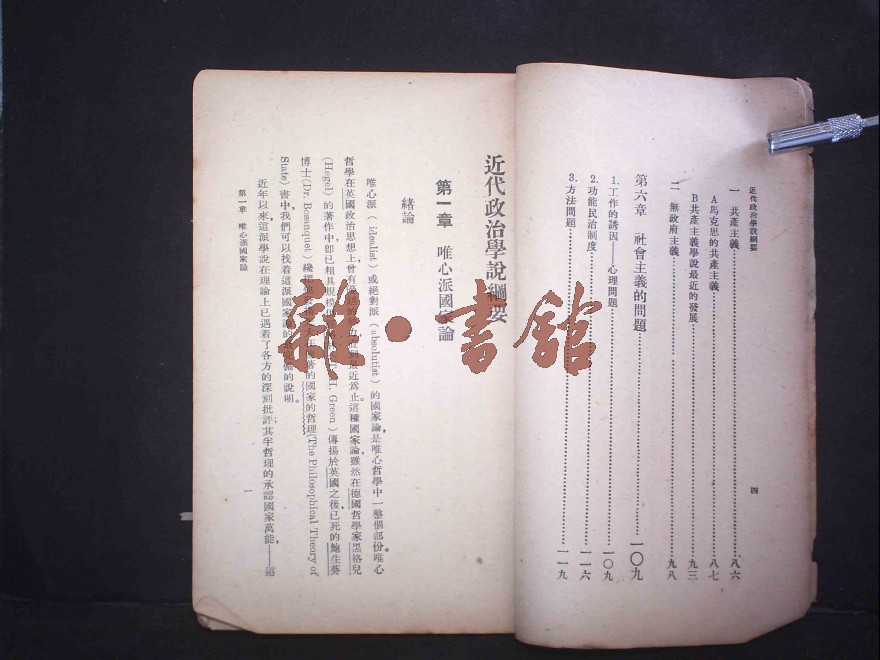 近代政治學說綱要
一 共產主義 八六
A 馬克思的共產主義 八七
B 共產主義學說最近的發展 九三
二 無政府主義 九八
第六章 社會主義的問題 一〇九
1. 工作的誘因——心理問題 一〇九
2. 功能民治制度 一一六
3. 方法問題 一一九
四
近代政治學說綱要
第一章 唯心派國家論
緒論
唯心派(idealist)或絕對派(absolutist)的國家論,是唯心哲學中一整個部份。唯心
哲學在英國政治思想上曾有 最近爲止。這種國家論,雖然在德國哲學家黑格兒
(Hegel)的著作中卽已粗具規模, Green)傳揚於英國之後,已死的鮑生葵
博士(Dr. Bosanquet)纔把 的國家的哲理(The Philosophical Theory of
State)書中,我們可以找着這派國家說的 的說明。
近年以來,這派學說在理論上已遇着了各方的深刻批評;其半哲理的承認國家萬能——這
第一章 唯心派國家論
一
雜·書館